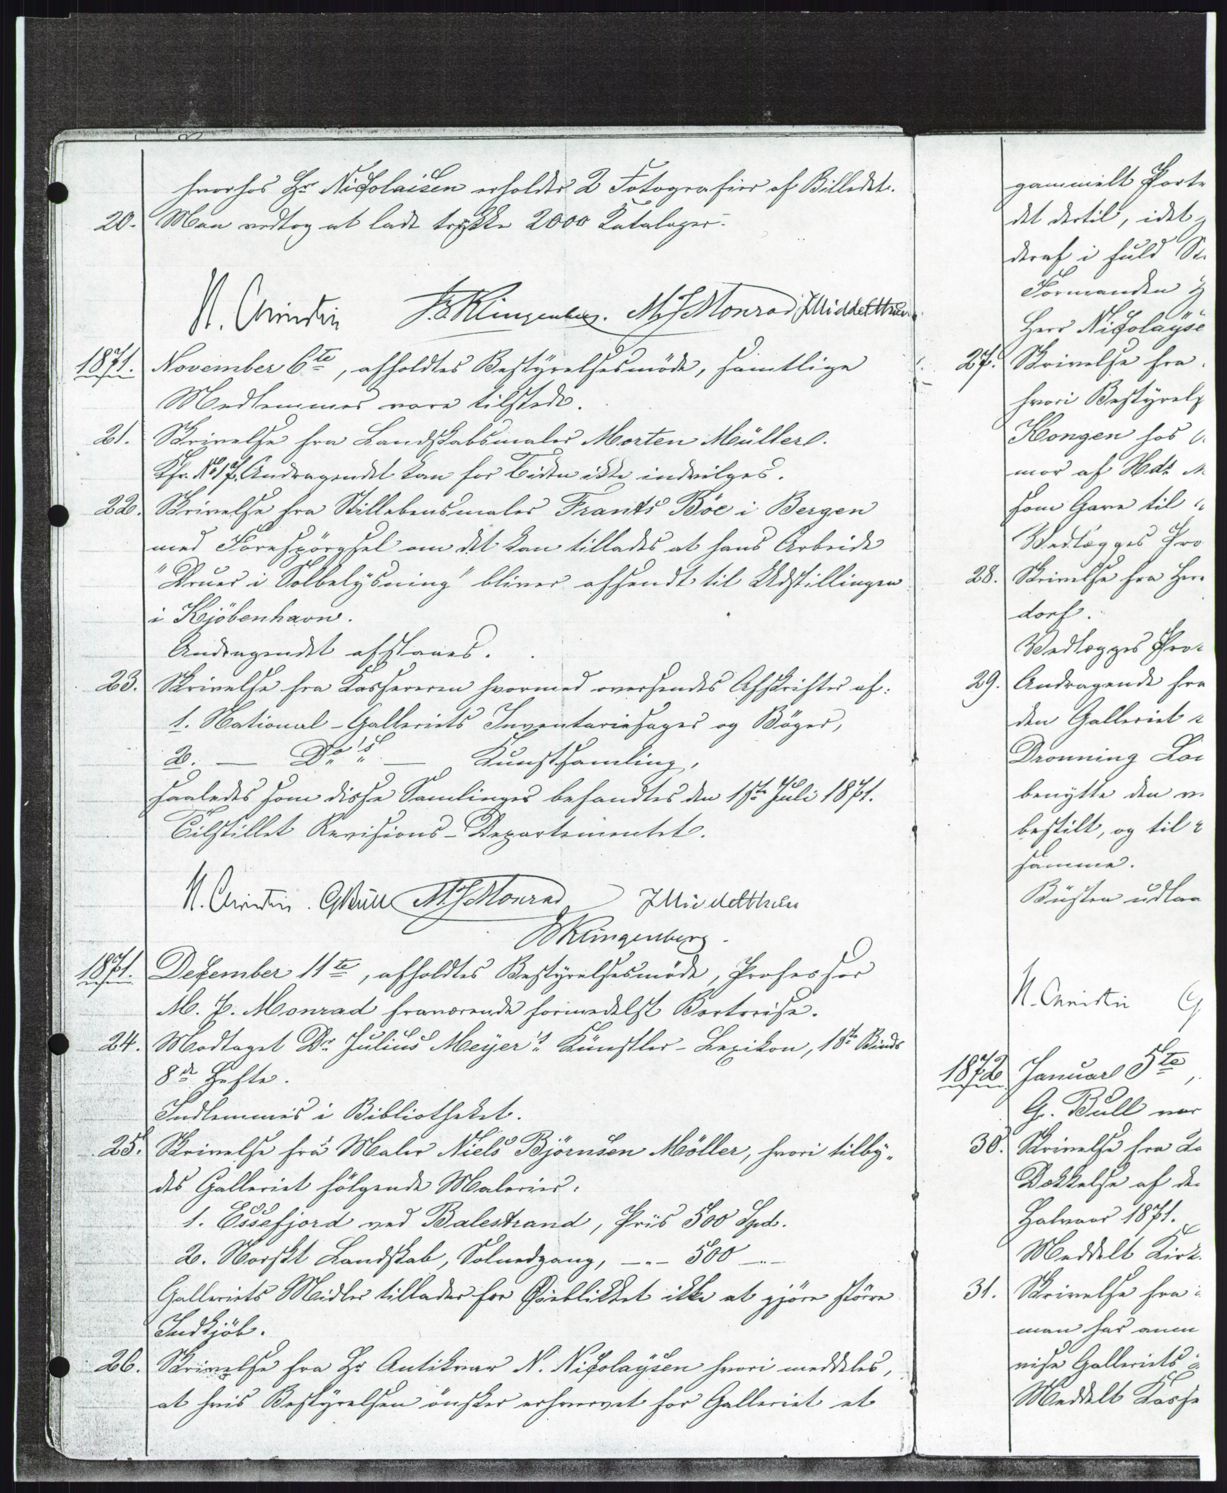 hvorhos Hr Nicolaisen erholder 2 Fotografier af Billedet.
20. Man vedtog at lade trykke 2000 Kataloger.
H. Christie J. Klingenberg. M J Monrad J Middelthun
1871. November 6te, afholdtes Bestyrelsesmöde, samtlige
Medlemmer vare tilstede.
21. Skrivelse fra Landskabsmaler Morten Müller.
Cfr. No 17. Andragendet kan for Tiden ikke indvilges.
22. Skrivelse fra Stillebensmaler Frants Böe i Bergen
med Forespörgsel om det kan tillades at hans Arbeide
"Druer i Solbelysning" bliver afsendt til Udstillingen
i Kjöbenhavn.
Andragendet afslaaes.
23. Skrivelse fra Kassereren hvormed oversendes Afskrifter af:
1. National-Galleriets Inventariesager og Böger,
2. — Do's — Kunstsamling,
saaledes som disse Samlinger befandtes den 1ste Juli 1871.
Tilstillet Revisions-Departementet.
H. Christie. G Bull M J Monrad J Middelthun
J Klingenberg.
1871. December 11te, afholdtes Bestyrelsesmöde, Professor
M. J. Monrad fraværende formedelst Bortreise.
24. Modtaget Dr Julius Meyer's Künstler-Lexikon, 1ste Binds
8de Hefte.
Indlemmes i Bibliotheket.
25. Skrivelse fra Maler Niels Björnsen Möller, hvori tilby-
des Galleriet fölgende Malerier:
1. Essefjord ved Balestrand, Priis 500 Spd.
2. Norskt Landskab, Solnedgang, —"— 500 —"—
Galleriets Midler tillader for Öieblikket ikke at gjöre större
Indkjöb.
26. Skrivelse fra Hr Antikvar N. Nicolaysen hvori meddeles,
at hvis Bestyrelsen önsker erhvervet for Galleriet et
gammelt Porte
det dertil, idet
deraf i fuld St
Formanden
Herr Nicolayse
27. Skrivelse fra
hvori Bestyrels
Kongen hos
mor af Hds
som Gave til
Vedlægges Pro
28. Skrivelse fra Herr
dorf.
Vedlægges Pro
29. Andragende fra
den Galleriet
Dronning Lou
benytte den
bestilt, og til
samme.
Büsten udlaa
H. Christie G
1872 Januar 5te,
G. Bull var
30. Skrivelse fra
Dækkelse af de
Halvaar 1871.
Meddelt Kirk
31. Skrivelse fra
man har anm
vise Galleriets
Meddelt Kasse